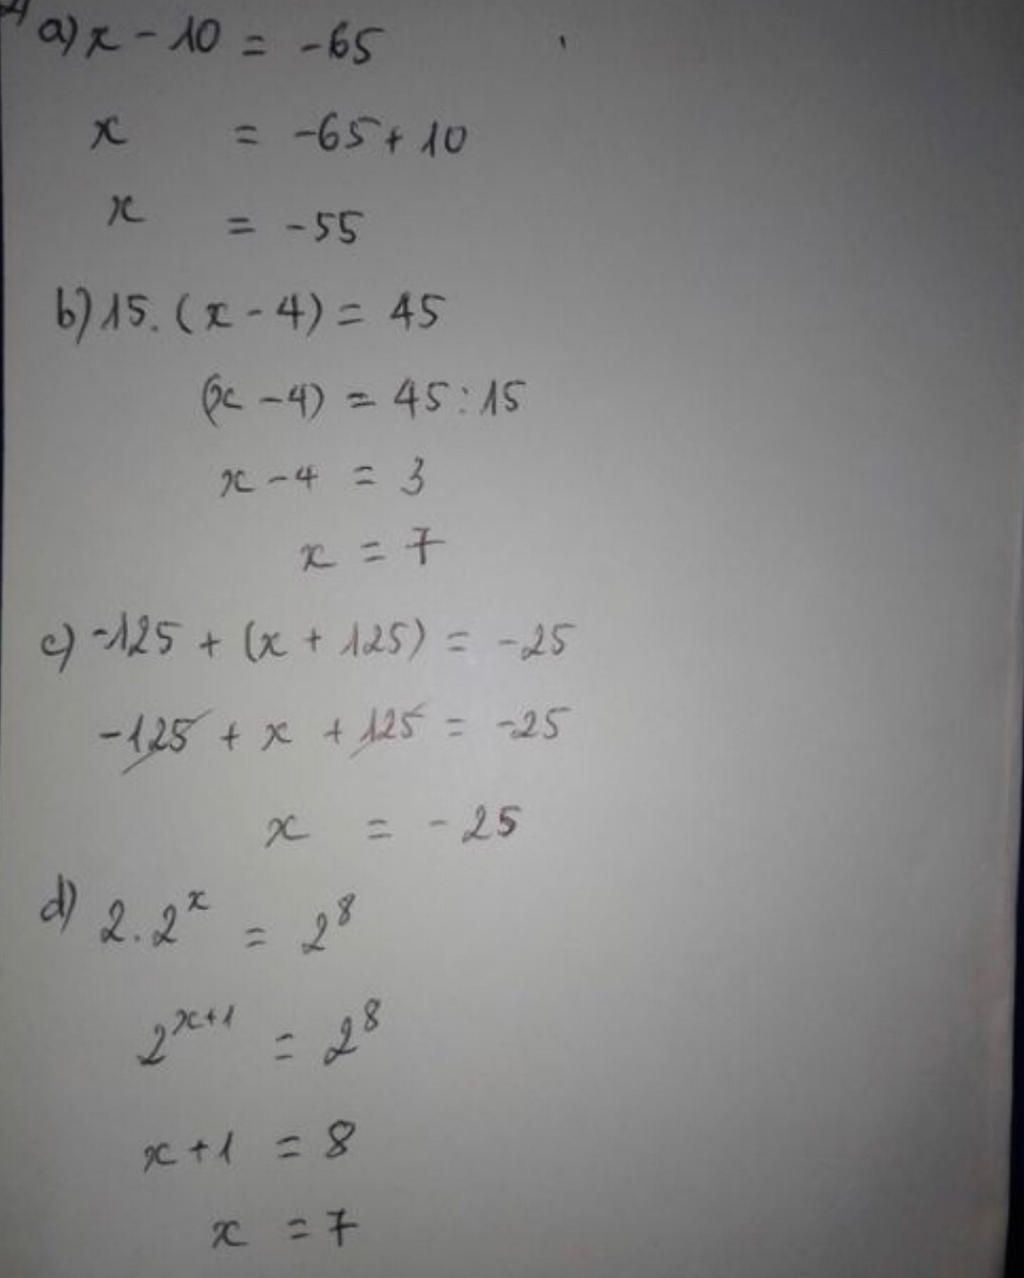 a) x - 10 = -65
x = -65 + 10
x = -55
b) 15. (x - 4) = 45
(x - 4) = 45 : 15
x - 4 = 3
x = 7
c) -125 + (x + 125) = -25
-125 + x + 125 = -25
x = -25
d) 2 . 2^x = 2^8
2^{x+1} = 2^8
x + 1 = 8
x = 7